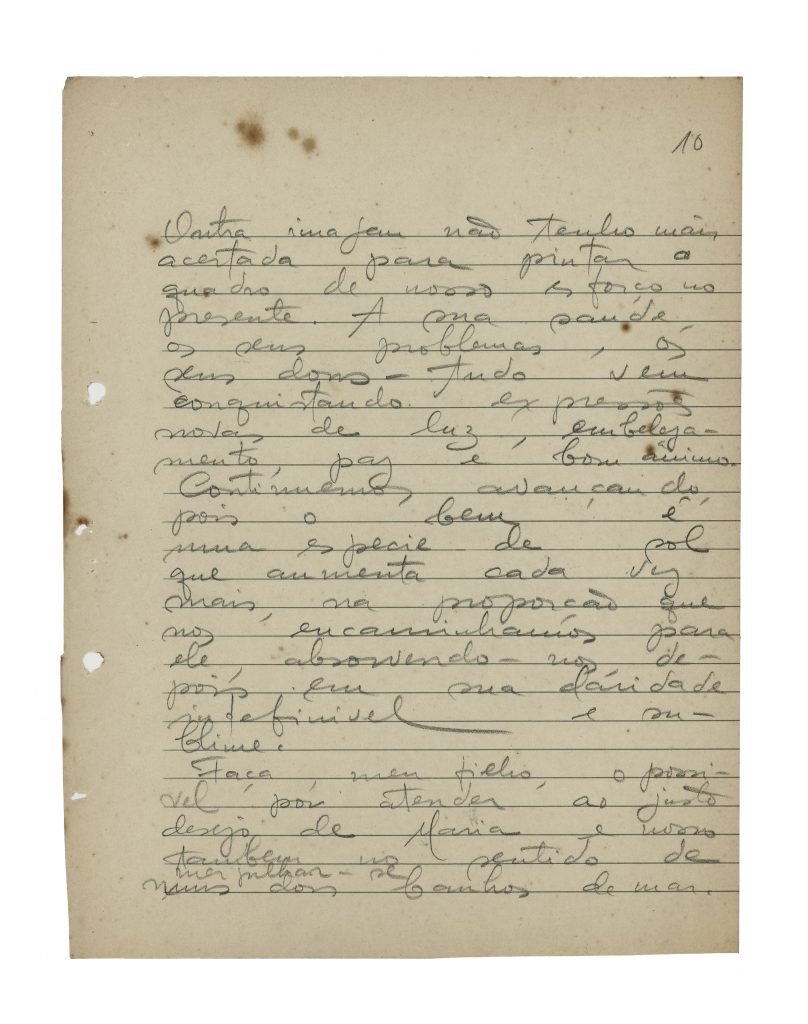 10
Outra imajem não tenho mais
acertada para pintar o
quadro de nosso esforço no
presente. A sua saúde,
os seus problemas, os
seus dons - tudo vem
conquistando expressões
novas de luz, embeleza-
mento, paz e bom ânimo.
Continuemos, avançando,
pois o bem é
uma especie de sol
que aumenta cada vez
mais, na proporção que
nos encaminhamos para
ele, absorvendo-nos, de-
pois em sua claridade
indefinivel e su-
blime.
Faça, meu filho, o possi-
vel por atender ao justo
desejo de Maria e nosso
tambem no sentido de
merjulhar-se
nuns dois banhos de mar.